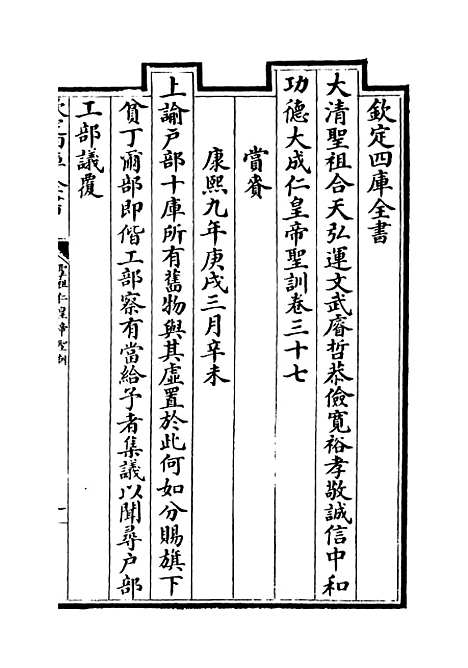 欽定四庫全書
大清聖祖合天弘運文武睿哲恭儉寬裕孝敬誠信中和
功德大成仁皇帝聖訓卷三十七
賞賚
康熙九年庚戌三月辛未
上諭戸部十庫所有舊物與其虛置於此何如分賜旗下
貧丁爾部即偕工部察有當給予者集議以聞尋戸部
工部議覆
聖祖仁皇帝聖訓
一